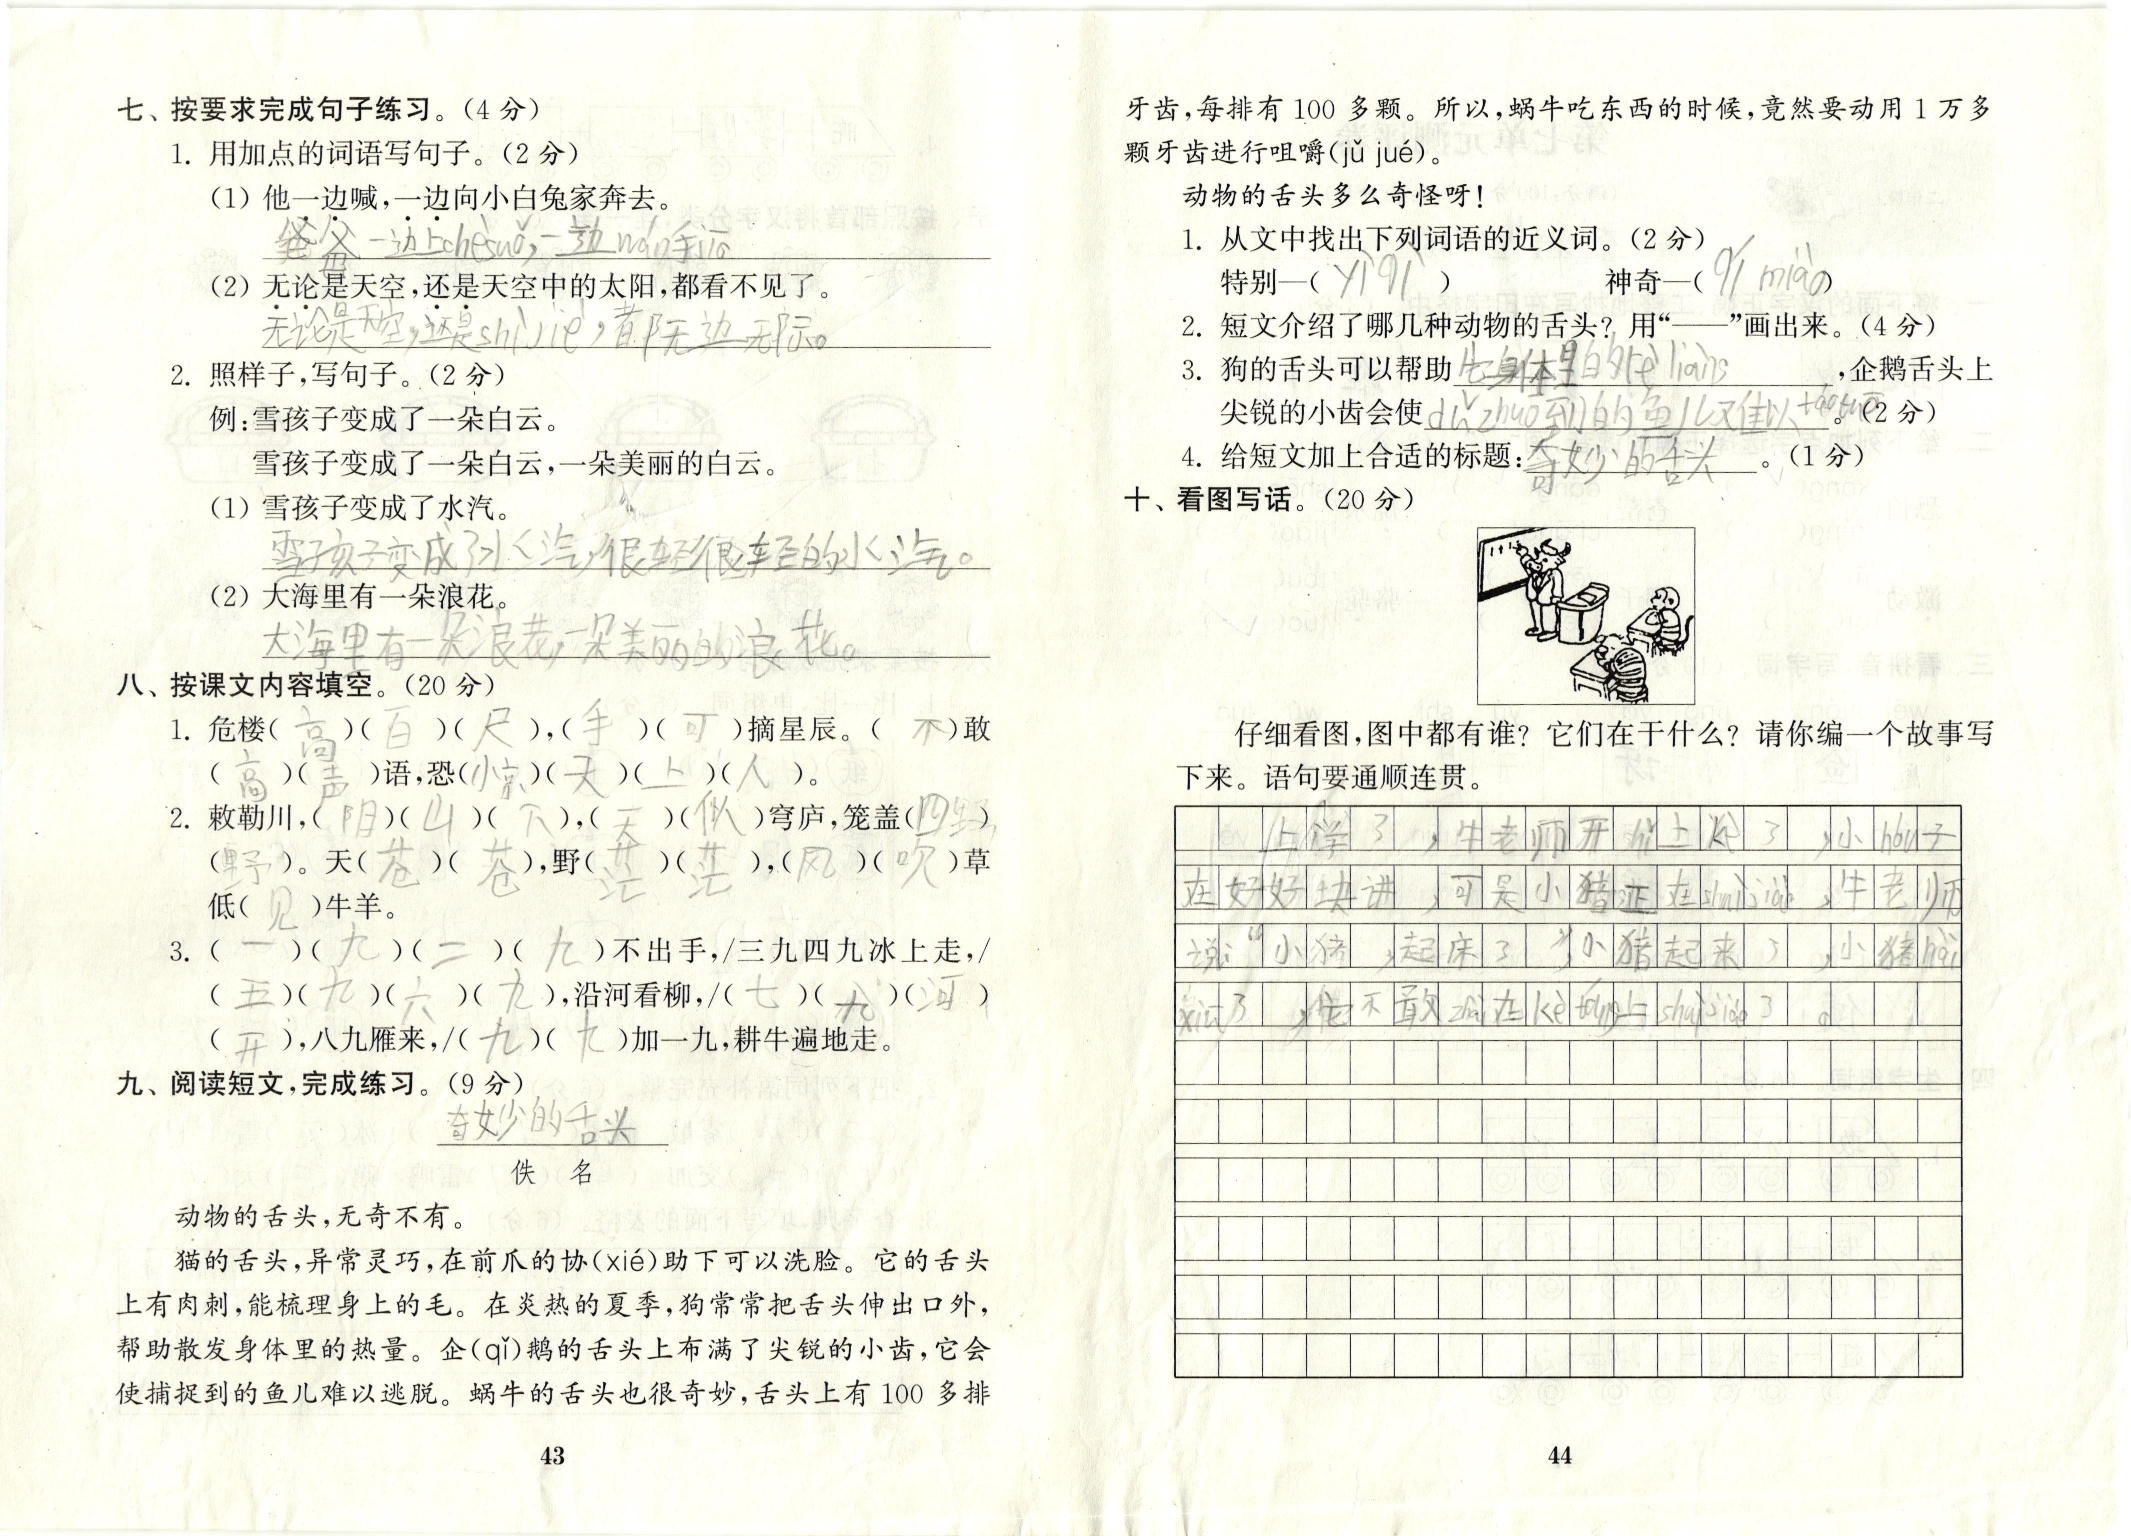 七、按要求完成句子练习。(4 分)
1. 用加点的词语写句子。(2 分)
(1) 他一边喊,一边向小白兔家奔去。
爸爸一边上cèsuǒ,一边wán手jī
(2) 无论是天空,还是天空中的太阳,都看不见了。
无论是天空,还是shìjiè,都无边无际。
2. 照样子,写句子。(2 分)
例:雪孩子变成了一朵白云。
雪孩子变成了一朵白云,一朵美丽的白云。
(1) 雪孩子变成了水汽。
雪孩子变成了水汽,很轻很轻的水汽。
(2) 大海里有一朵浪花。
大海里有一朵浪花,一朵美丽的浪花。
八、按课文内容填空。(20 分)
1. 危楼( 高 )( 百 )( 尺 ),( 手 )( 可 )摘星辰。( 不 )敢
( 高 )( 声 )语,恐(惊)( 天 )( 上 )( 人 )。
2. 敕勒川,( 阴 )( 山 )( 下 ),( 天 )( 似 )穹庐,笼盖(四)
( 野 )。天( 苍 )( 苍 ),野( 茫 )( 茫 ),( 风 )( 吹 )草
低( 见 )牛羊。
3. ( 一 )( 九 )( 二 )( 九 )不出手,/三九四九冰上走,/
( 五 )( 九 )( 六 )( 九 ),沿河看柳,/( 七 )( 九 )( 河 )
( 开 ),八九雁来,/( 九 )( 九 )加一九,耕牛遍地走。
九、阅读短文,完成练习。(9 分)
奇妙的舌头
佚 名
动物的舌头,无奇不有。
猫的舌头,异常灵巧,在前爪的协(xié)助下可以洗脸。它的舌头
上有肉刺,能梳理身上的毛。在炎热的夏季,狗常常把舌头伸出口外,
帮助散发身体里的热量。企(qǐ)鹅的舌头上布满了尖锐的小齿,它会
使捕捉到的鱼儿难以逃脱。蜗牛的舌头也很奇妙,舌头上有 100 多排
43
牙齿,每排有 100 多颗。所以,蜗牛吃东西的时候,竟然要动用 1 万多
颗牙齿进行咀嚼(jǔ jué)。
动物的舌头多么奇怪呀!
1. 从文中找出下列词语的近义词。(2 分)
特别—( yì qí ) 神奇—( qí miào )
2. 短文介绍了哪几种动物的舌头? 用“——”画出来。(4 分)
3. 狗的舌头可以帮助它身体里的rè liàng,企鹅舌头上
尖锐的小齿会使bǔ zhuō到的鱼儿难以táo tuō。(2 分)
4. 给短文加上合适的标题:奇妙的舌头。(1 分)
十、看图写话。(20 分)
仔细看图,图中都有谁? 它们在干什么? 请你编一个故事写
下来。语句要通顺连贯。
上学了,牛老师开始上课了,小hóu子
在好好听讲,可是小猪正在shuì jiào,牛老师
说:“小猪,起床了”,小猪起来了,小猪hài
xiū了,他不敢zài在kè táng上shuì jiào了。
44